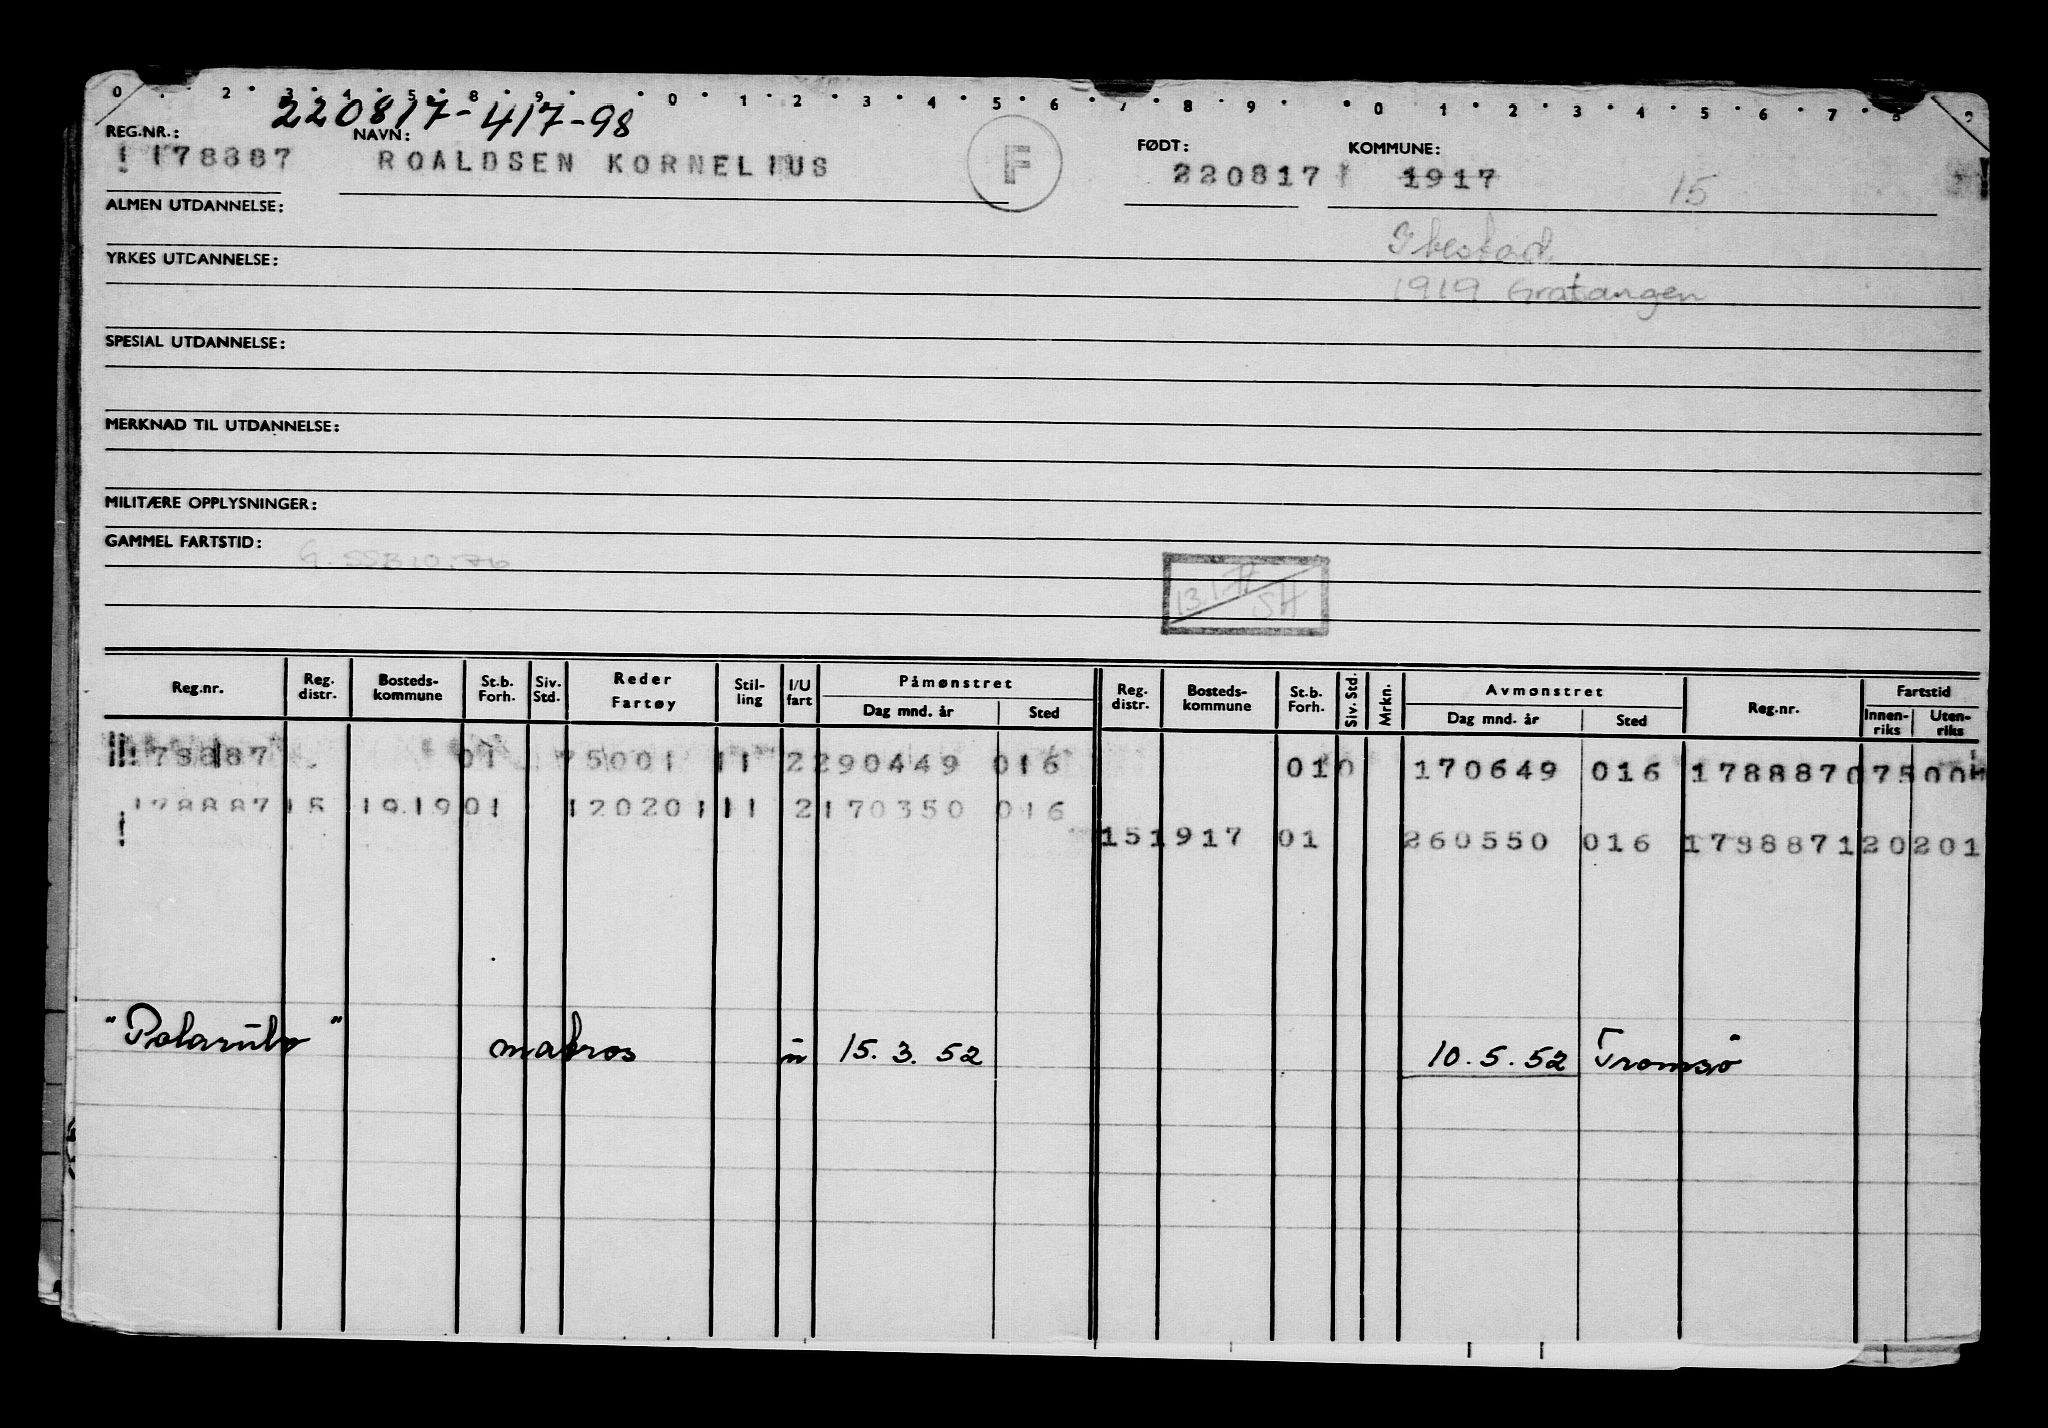 0 . 2 . 3 . 4 . 5 . 8 . 9 . . 0 . 1 . 2 . 3 . 4 . 5 . 6 . 7 . 8 . 9 . . 0 . 1 . 2 . 3 . 4 . 5 . 6 . 7 . 8 . 9
220817-417-98
REG.NR.: NAVN: FØDT: KOMMUNE:
178887 ROALDSEN KORNELIUS F 220817 1917 15
ALMEN UTDANNELSE:
Ibestad
YRKES UTDANNELSE:
1919 Gratangen
SPESIAL UTDANNELSE:
MERKNAD TIL UTDANNELSE:
MILITÆRE OPPLYSNINGER:
GAMMEL FARTSTID: G. SSB 10.76
SH
Reg.nr. Reg. distr. Bosteds-kommune St.b. Forh. Siv. Std. Reder Fartøy Stil-ling I/U fart Påmønstret Dag mnd. år Sted Reg. distr. Bosteds-kommune St.b. Forh. Siv. Std. Mrkn. Avmønstret Dag mnd. år Sted Reg.nr. Fartstid Innen-riks Uten-riks
78887 01 75001 11 2 290449 016 01 0 170649 016 178887 075001
178887 15 1919 01 120201 11 2 170350 016
15 1917 01 260550 016 178887 120201
" " matros u 15. 3. 52 10. 5. 52 Tromsø